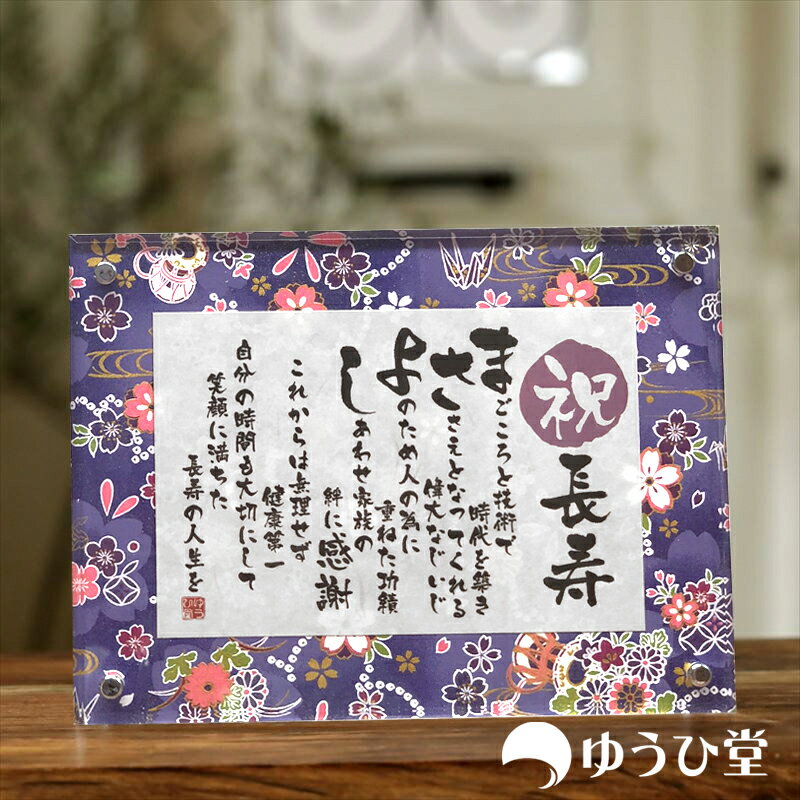 祝
長寿
まごころと技術で
時代を築き
ささえとなってくれる
偉大なじいじ
よのため人の為に
重ねた功績
しあわせ家族の
絆に感謝
これからは無理せず
健康第一
自分の時間も大切にして
笑顔に満ちた
長寿の人生を
ゆうひ堂